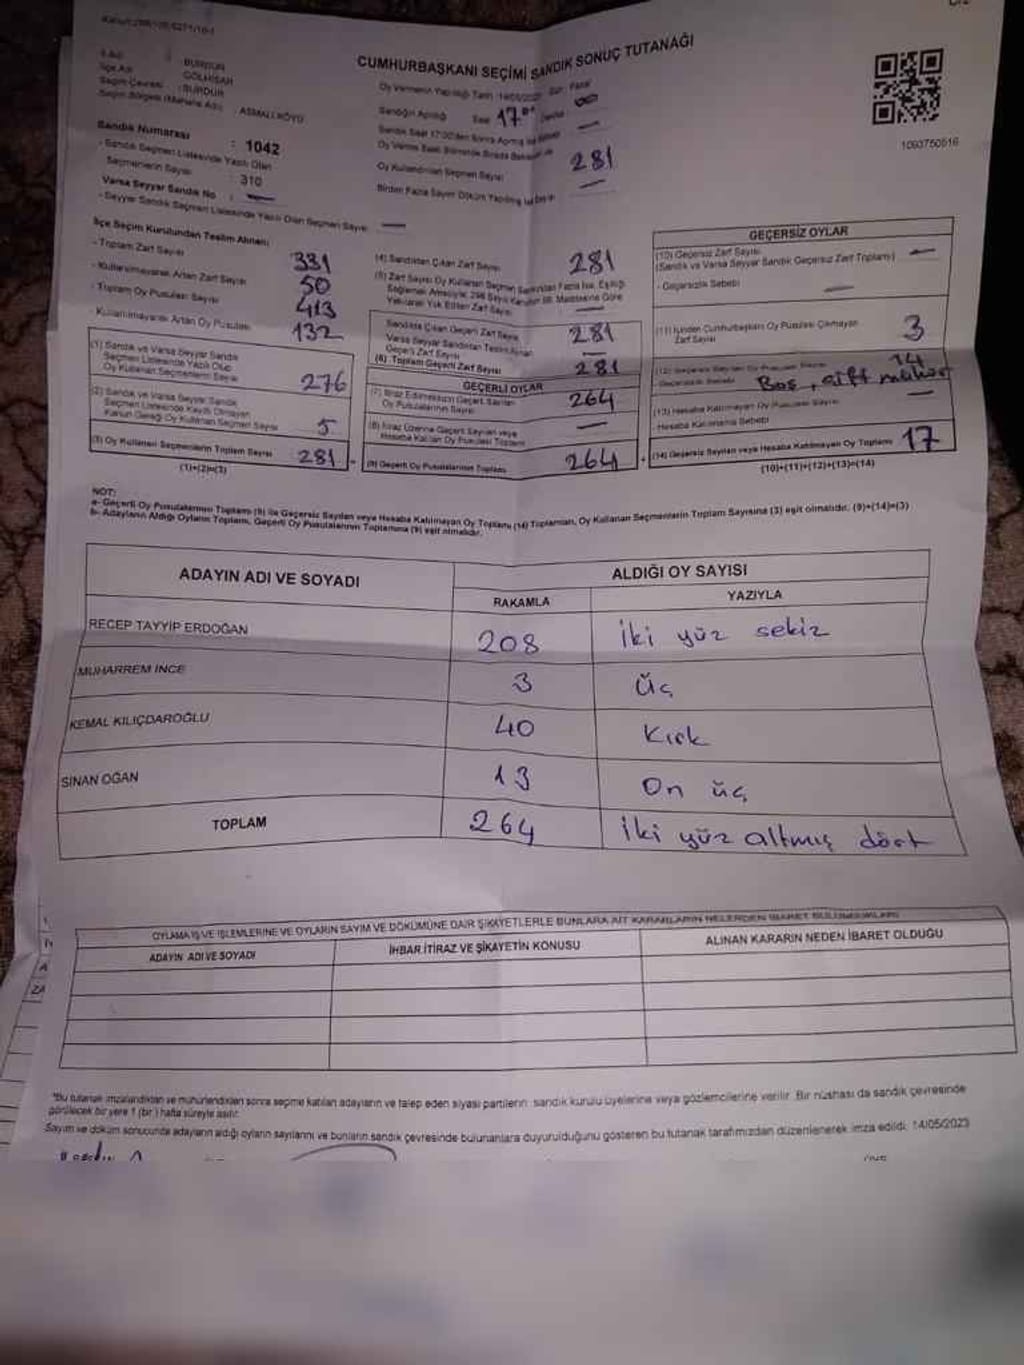 CUMHURBAŞKANI SEÇİMİ SANDIK SONUÇ TUTANAĞI
İlçe Adı : GÖLHİSAR
Seçim Çevresi : BURDUR
Seçim Bölgesi (Mahalle Adı) : ASMALI KÖYÜ
Sandık Numarası : 1042
- Sandık Seçmen Listesinde Yazılı Olan
Seçmenlerin Sayısı : 310
Varsa Seyyar Sandık No : —
- Seyyar Sandık Seçmen Listesinde Yazılı Olan Seçmen Sayısı —
Oy Vermenin Yapıldığı Tarih : 14/05/2023 Gün : Pazar
Sandığın Açıldığı Saat 17
Oy Kullandırılan Seçmen Sayısı 281
Birden Fazla Sayım Döküm Yapılmış ise Sayısı —
1093750516
İlçe Seçim Kurulundan Teslim Alınan:
- Toplam Zarf Sayısı 331
- Kullanılmayarak Artan Zarf Sayısı 50
- Toplam Oy Pusulası Sayısı 413
- Kullanılmayarak Artan Oy Pusulası 132
(1) Sandık ve Varsa Seyyar Sandık
Seçmen Listesinde Yazılı Olup
Oy Kullanan Seçmenlerin Sayısı 276
(2) Sandık ve Varsa Seyyar Sandık
Seçmen Listesinde Kayıtlı Olmayan
Kanun Gereği Oy Kullanan Seçmen Sayısı 5
(3) Oy Kullanan Seçmenlerin Toplam Sayısı 281
(1)+(2)=(3)
(4) Sandıktan Çıkan Zarf Sayısı 281
(5) Zarf Sayısı Oy Kullanan Seçmen Sayısından Fazla İse, Eşitliği
Sağlamak Amacıyla; 298 Sayılı Kanunun 98. Maddesine Göre
Yakılarak Yok Edilen Zarf Sayısı —
Sandıkta Çıkan Geçerli Zarf Sayısı 281
Varsa Seyyar Sandıktan Teslim Alınan
Geçerli Zarf Sayısı —
(6) Toplam Geçerli Zarf Sayısı 281
GEÇERLİ OYLAR
(7) İtiraz Edilmeksizin Geçerli Sayılan
Oy Pusulalarının Sayısı 264
(8) İtiraz Üzerine Geçerli Sayılan veya
Hesaba Katılan Oy Pusulası Toplamı —
(9) Geçerli Oy Pusulalarının Toplamı 264
GEÇERSİZ OYLAR
(10) Geçersiz Zarf Sayısı
(Sandık ve Varsa Seyyar Sandık Geçersiz Zarf Toplamı) —
- Geçersizlik Sebebi —
(11) İçinden Cumhurbaşkanı Oy Pusulası Çıkmayan
Zarf Sayısı 3
14
Boş, çift mühür
(13) Hesaba Katılmayan Oy Pusulası Sayısı —
- Hesaba Katılmama Sebebi
(14) Geçersiz Sayılan veya Hesaba Katılmayan Oy Toplamı 17
(10)+(11)+(12)+(13)=(14)
NOT:
a- Geçerli Oy Pusulalarının Toplamı (9) ile Geçersiz Sayılan veya Hesaba Katılmayan Oy Toplamı (14) Toplamları, Oy Kullanan Seçmenlerin Toplam Sayısına (3) eşit olmalıdır. (9)+(14)=(3)
b- Adayların Aldığı Oyların Toplamı, Geçerli Oy Pusulalarının Toplamına (9) eşit olmalıdır.
ADAYIN ADI VE SOYADI ALDIĞI OY SAYISI
RAKAMLA YAZIYLA
RECEP TAYYİP ERDOĞAN 208 İki yüz sekiz
MUHARREM İNCE 3 Üç
KEMAL KILIÇDAROĞLU 40 Kırk
SİNAN OĞAN 13 On üç
TOPLAM 264 İki yüz altmış dört
OYLAMA İŞ VE İŞLEMLERİNE VE OYLARIN SAYIM VE DÖKÜMÜNE DAİR ŞİKAYETLERLE BUNLARA AİT KARARLARIN NELERDEN İBARET BULUNDUKLARI
ADAYIN ADI VE SOYADI İHBAR İTİRAZ VE ŞİKAYETİN KONUSU ALINAN KARARIN NEDEN İBARET OLDUĞU
*Bu tutanak imzalandıktan ve mühürlendikten sonra seçime katılan adayların ve talep eden siyasi partilerin sandık kurulu üyelerine veya gözlemcilerine verilir. Bir nüshası da sandık çevresinde
görülecek bir yere 1 (bir) hafta süreyle asılır.
Sayım ve döküm sonucunda adayların aldığı oyların sayılarını ve bunların sandık çevresinde bulunanlara duyurulduğunu gösteren bu tutanak tarafımızdan düzenlenerek imza edildi. 14/05/2023